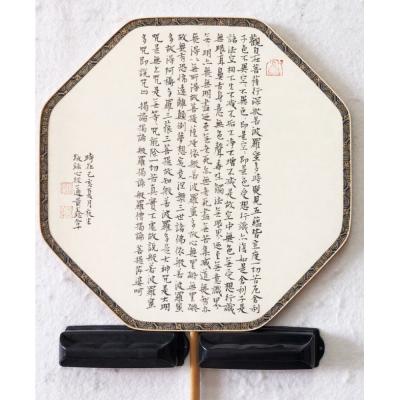 觀自在菩薩行深般若波羅蜜多時照見五蘊皆空度一切苦厄舍利
子色不異空空不異色色即是空空即是色受想行識亦復如是舍利子是
諸法空相不生不滅不垢不淨不增不減是故空中無色無受想行識
無眼耳鼻舌身意無色聲香味觸法無眼界乃至無意識界
無無明亦無無明盡乃至無老死亦無老死盡無苦集滅道無智亦
無得以無所得故菩提薩埵依般若波羅蜜多故心無罣礙無罣礙
故無有恐怖遠離顛倒夢想究竟涅槃三世諸佛依般若波羅蜜
多故得阿耨多羅三藐三菩提故知般若波羅蜜多是大神咒是大明
咒是無上咒是無等等咒能除一切苦真實不虛故說般若波羅蜜
多咒即說咒曰揭諦揭諦般羅揭諦般羅僧揭諦菩提薩婆訶
時在己亥夏月
敬錄心經一通